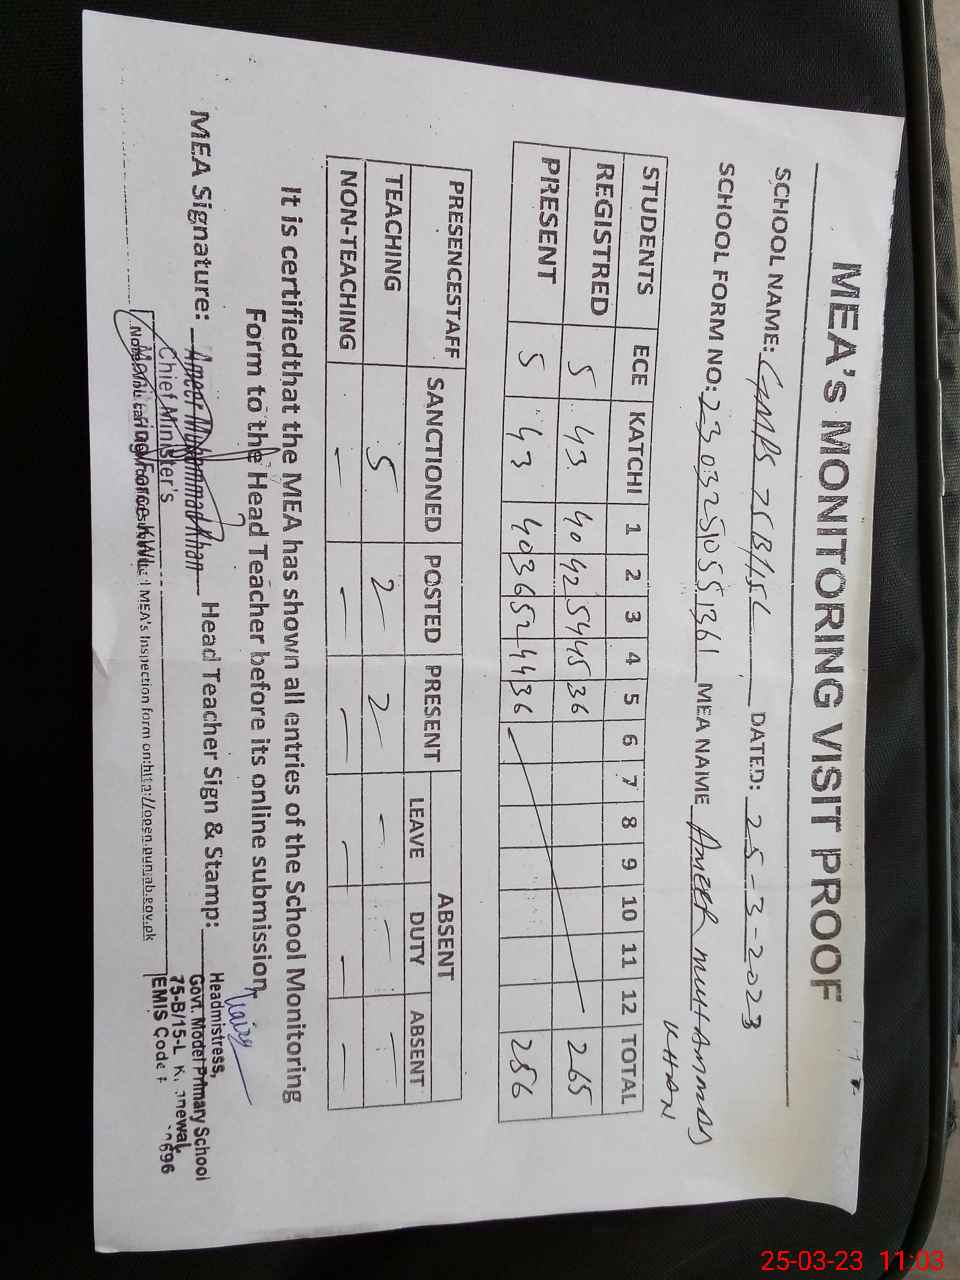 MEA's MONITORING VISIT PROOF
SCHOOL NAME: GMPS 75B/15L DATED: 25-3-2023
SCHOOL FORM NO: 2303250551361 MEA NAME AMEER MUHAMMAD KHAN
STUDENTS ECE KATCHI 1 2 3 4 5 6 7 8 9 10 11 12 TOTAL
REGISTRED 5 43 40 42 54 45 36 265
PRESENT 5 43 40 36 52 44 36 256
PRESENCESTAFF SANCTIONED POSTED PRESENT ABSENT
LEAVE DUTY ABSENT
TEACHING 5 2 2 - - -
NON-TEACHING - - - - - -
It is certifiedthat the MEA has shown all entries of the School Monitoring
Form to the Head Teacher before its online submission
MEA Signature: Ameer Muhammad Khan Head Teacher Sign & Stamp:
Chief Minister's
Monitoring Force KWL
MEA's Inspection form on: http://open.punjab.gov.pk
Headmistress,
Govt. Model Primary School
75-B/15-L
EMIS Code
25-03-23 11:03